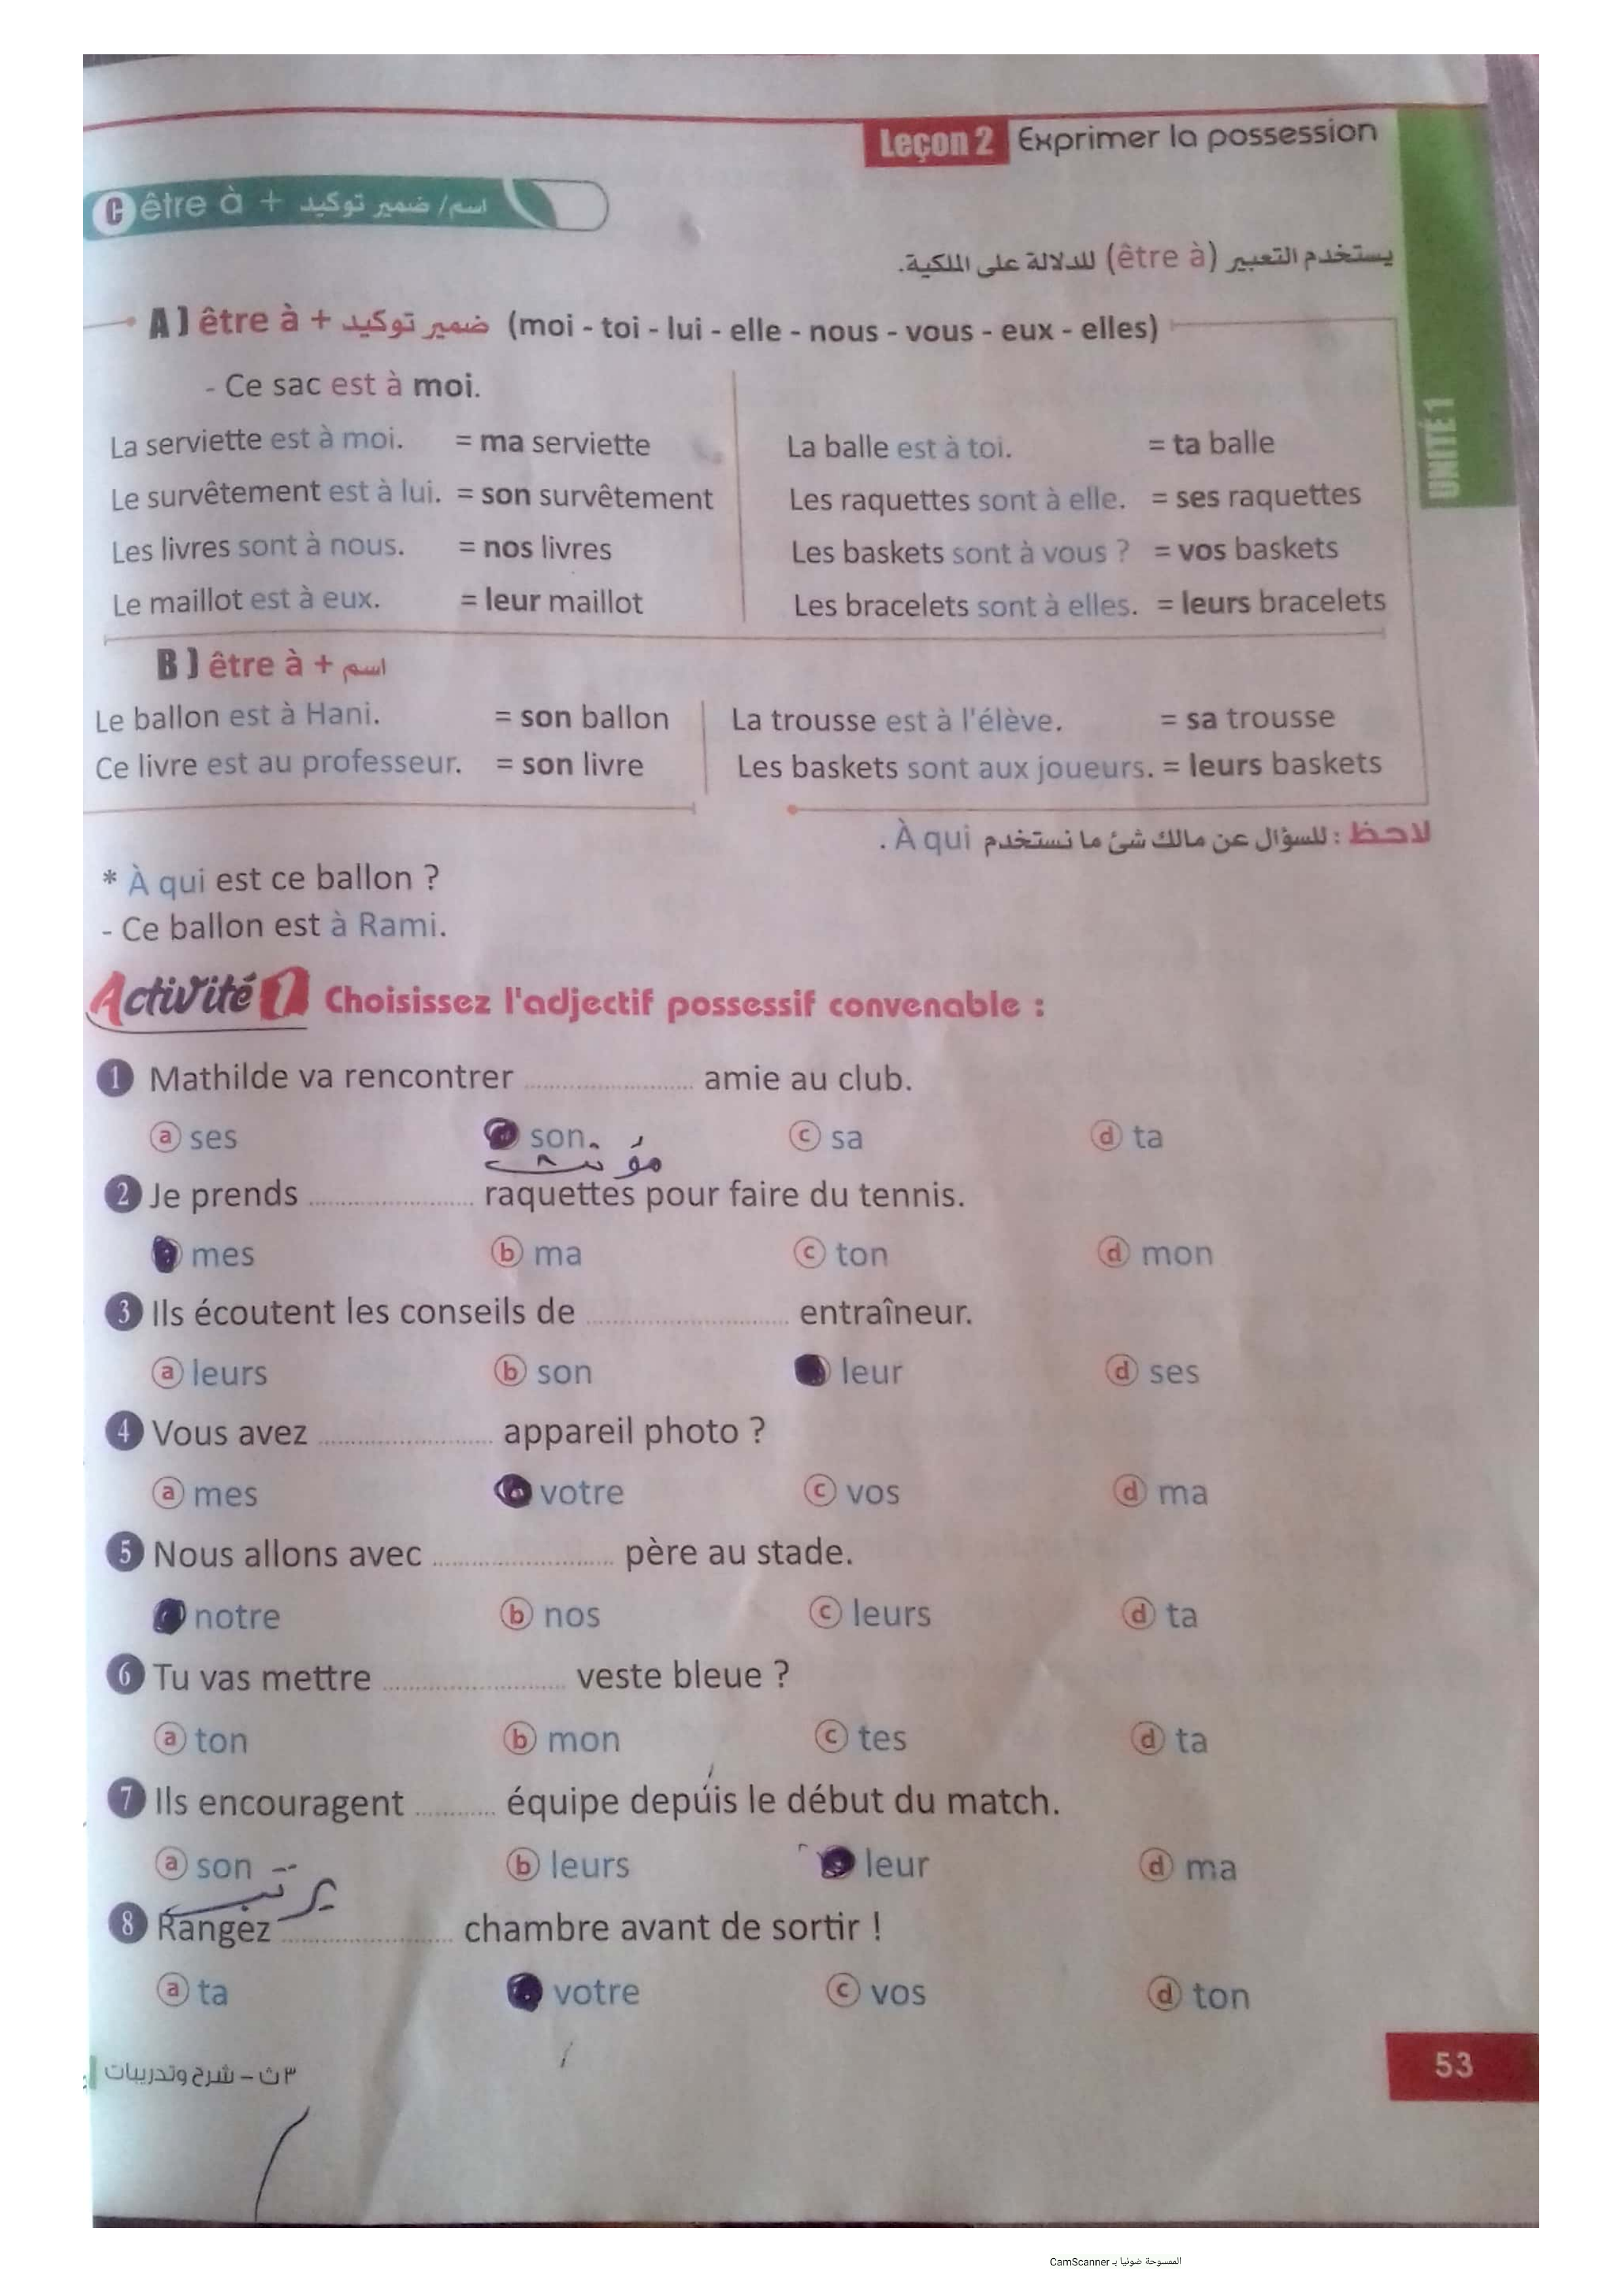 Leçon 2 Exprimer la possession
C être à + اسم/ ضمير توكيد
يستخدم التعبير (être à) للدلالة على الملكية.
UNITÉ 1
A ) être à + ضمير توكيد (moi - toi - lui - elle - nous - vous - eux - elles)
- Ce sac est à moi.
La serviette est à moi. = ma serviette La balle est à toi. = ta balle
Le survêtement est à lui. = son survêtement Les raquettes sont à elle. = ses raquettes
Les livres sont à nous. = nos livres Les baskets sont à vous ? = vos baskets
Le maillot est à eux. = leur maillot Les bracelets sont à elles. = leurs bracelets
B ) être à + اسم
Le ballon est à Hani. = son ballon La trousse est à l'élève. = sa trousse
Ce livre est au professeur. = son livre Les baskets sont aux joueurs. = leurs baskets
لاحظ : للسؤال عن مالك شئ ما نستخدم À qui .
* À qui est ce ballon ?
- Ce ballon est à Rami.
Activité 1 Choisissez l'adjectif possessif convenable :
1 Mathilde va rencontrer ........................ amie au club.
a ses son c sa d ta
مؤنث
2 Je prends ........................ raquettes pour faire du tennis.
mes b ma c ton d mon
3 Ils écoutent les conseils de ........................ entraîneur.
a leurs b son leur d ses
4 Vous avez ........................ appareil photo ?
a mes votre c vos d ma
5 Nous allons avec ........................ père au stade.
notre b nos c leurs d ta
6 Tu vas mettre ........................ veste bleue ?
a ton b mon c tes d ta
7 Ils encouragent ............ équipe depuis le début du match.
a son b leurs leur d ma
يرتب
8 Rangez ........................ chambre avant de sortir !
a ta votre c vos d ton
٣ ث – شرح وتدريبات
53
الممسوحة ضوئيا بـ CamScanner